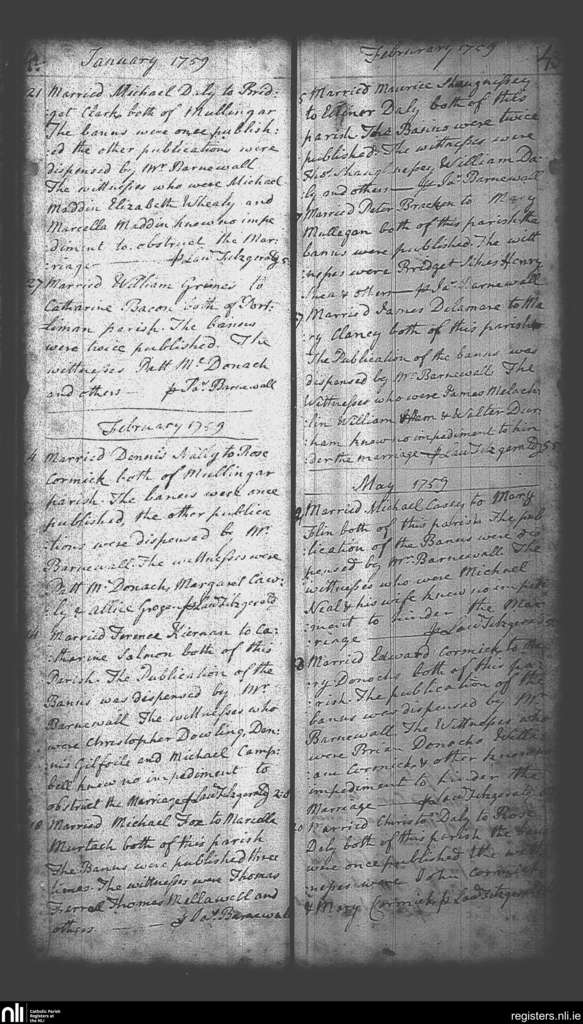 4. January 1759
21 Married Michael Daly to Brid=
:get Clark both of Mullingar
The banns were once publish:
:ed the other publications were
dispensed by Mr. Barnewall
The wittnesses who were Michael
Maddin Elizabeth Whealy and
Marcella Maddin know no impe
:diment to obstruct the Mar:
:riage — Lau: Fitzgerald
27 Married William Greenes to
Catharine Bacon both of Port:
:loman parish. The banns
were twice published. The
wittnesses Patt McDonach
and others — Ja: Barnewall
February 1759
4 Married Dennis Nally to Rose
Cormick both of Mullingar
parish. The banns were once
published, the other publica
:tions were dispensed by Mr.
Barnewall. The wittnesses were
Patt McDonach, Margaret Caw:
:ly & Allice Grogan Lau: Fitzgerald
Married Terence Kiernan to Ca:
:tharine Salmon both of this
Parish. The Publication of the
Banns was dispensed by Mr.
Barnewall The wittnesses who
were Christopher Dowling, Den:
:nis Gilfoile and Michael Camp:
bell know no impediment to
obstruct the Marriage Lau: Fitzgerald
Married Michael Fox to Marcella
Murtach both of this parish
The Banns were published three
times. The wittnesses were Thomas
Farrell Thomas Mellawell and
others — Ja: Barnewall
February 1759 4.
5 Married Maurice Shaughnessey
to Elinor Daly both of this
parish. The Banns were twice
published. The witnesses were
Thos. Shaughnessey & William Da:
:ly and others — Ja: Barnewall
Married Peter Bracken to Mary
Mullegan both of this parish the
banns were published. The witt
:nesses were Bridget Henry
Shea & others — Ja: Barnewall
Married James Delamare to Ma
:ry Clancy both of this parish
The Publication of the banns was
dispensed by Mr. Barnewall. The
Wittnesses who were James Melach:
:lin William & Walter Dur:
:ham know no impediment to hin
:der the marriage Lau: Fitzgerald
May 1759
Married Michael Casey to Mary
Flin both of this parish. The pub
:lication of the Banns were dis
:pensed by Mr. Barnewall. The
wittnesses who were Michael
Neal & his wife know no impedi
:ment to hinder the Mar
:riage — Lau: Fitzgerald
Married Edward Cormick to Ma:
:ry Donochs both of this pa:
:rish. The publication of the
banns was dispensed by Mr.
Barnewall. The Wittnesses who
were Brian Donochs & Willi
:am Cormick & other know no
impediment to hinder the
Marriage — Lau: Fitzgerald
Married Christo: Daly to Rose
Daly both of this parish the banns
were once published the witt
:nesses were John Cormick
& Mary Cormick Lau: Fitzgerald
nli Catholic Parish
Registers at
the NLI
registers.nli.ie